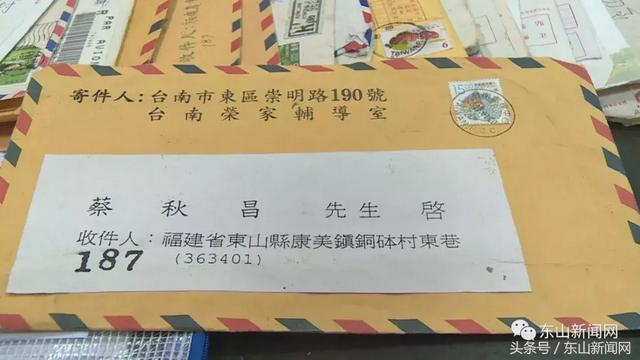 收件人:
187
6
寄件人:台南市東區崇明路190號
台南榮家輔導室
15
蔡秋昌先生啓
收件人:福建省東山縣康美鎮銅砵村東巷
187
(363401)
东山新闻网
头条号/东山新闻网